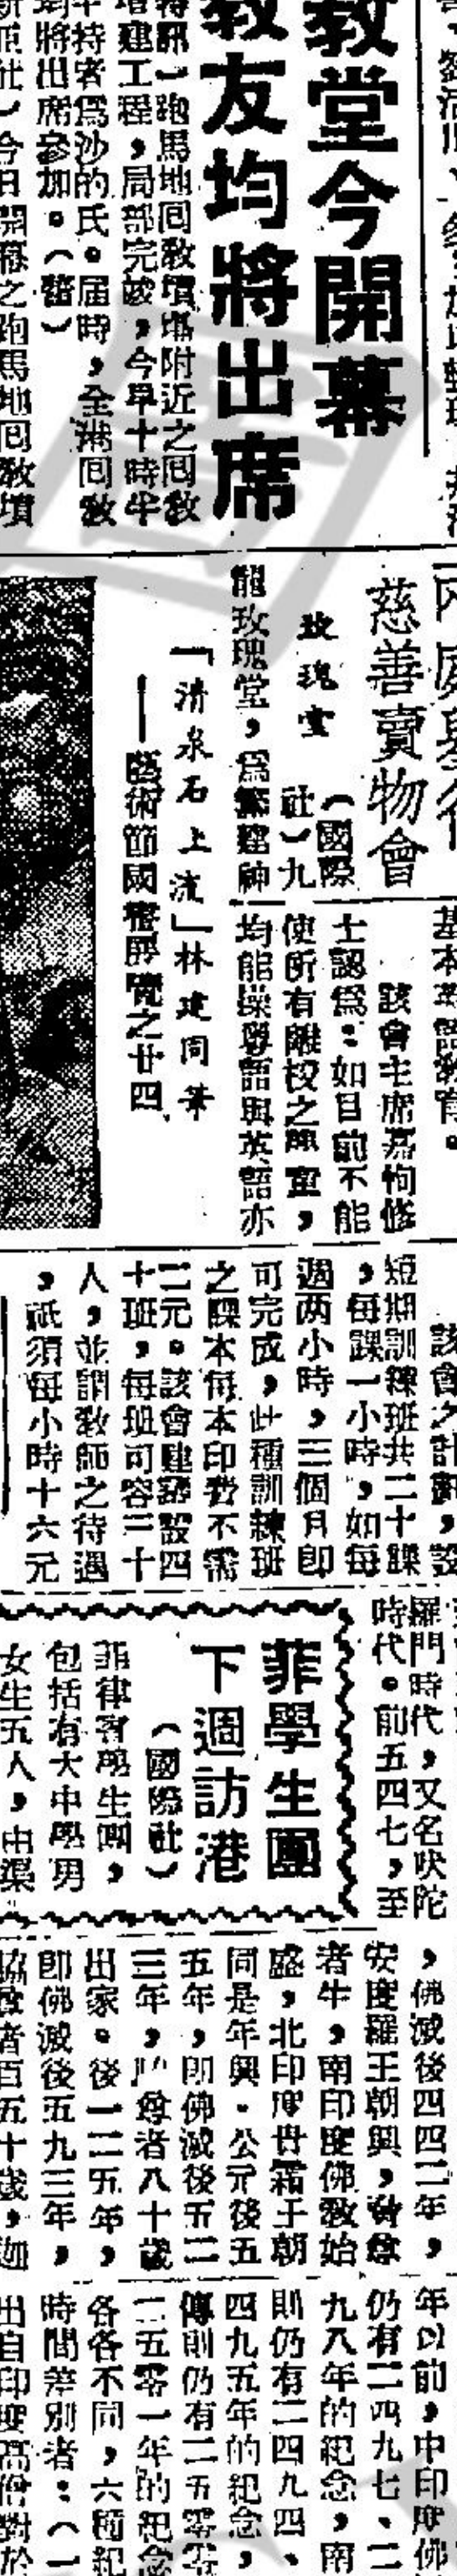 教堂今開幕
教友均將出席
特訊）跑馬地回教墳塲附近之回教
增建工程，局部完竣，今早十時半
主持者為沙的氏。屆時，全港回教
均將出席參加。（諧）
今日開幕之跑馬地回教墳
慈善賣物會
玫瑰堂
（國際
社）九
龍玫瑰堂，為籌建神
「清泉石上流」林建同筆
——藝術節國畫展覽之廿四
基本英語教育。
該會主席嘉
士認為：如目前不能
使所有離校之學童，
均能操粵語與英語亦
該會之計劃，設
短期訓練班共二十課
，每課一小時，如每
週两小時，三個月即
可完成，此種訓練班
之課本每本印費不需
二元。該會建議設四
十班，每班可容三十
人，並謂教師之待遇
，祇須每小時十六元
菲學生團
下週訪港
（國際社）
菲律賓學生團，
包括有大中學男
女生五人，由渠
羅門時代，又名吠陀
時代。前五四七，至
，佛滅後四四二年，
安度羅王朝興，
者牛，南印度佛教始
盛，北印度貴霜王朝
同是年興．公元後五
五年，即佛滅後五二
三年，尊者八十歲
出家。後一二五年，
即佛滅後五九三年，
脇尊者百五十歲，迦
年以前，中印度佛
仍有二四九七、二
九八年的紀念，南
則仍有二四九四、
四九五年的紀念，
傳則仍有二五零零
二五零一年的紀念
各各不同，六種紀
時間差別者：（一
出自印度高僧對於